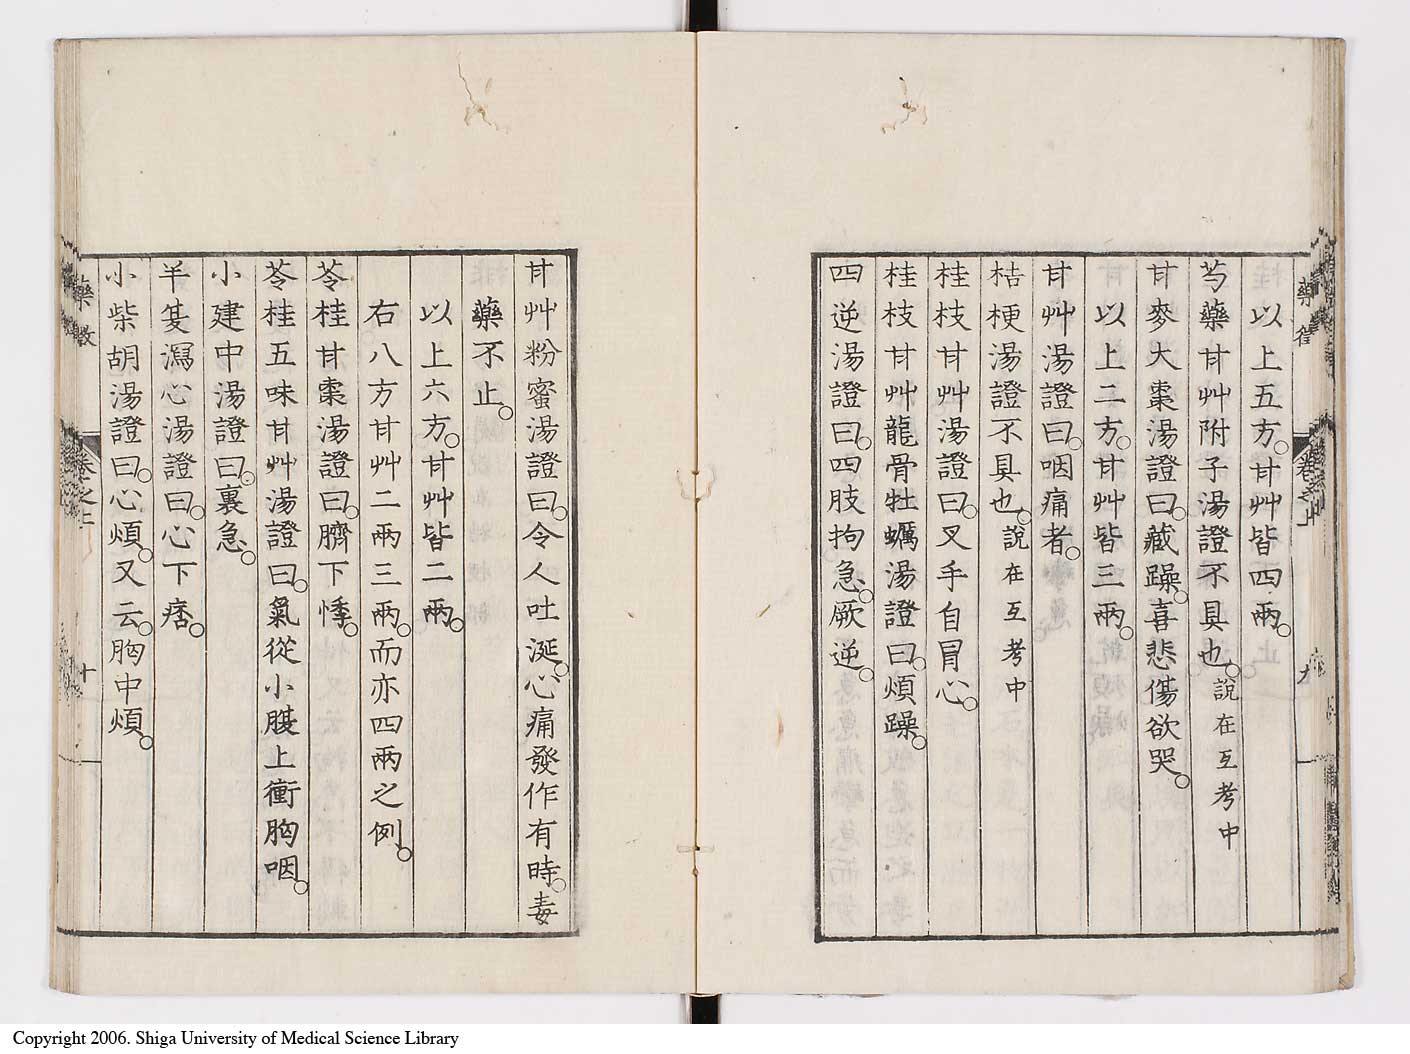 以上五方。甘艸皆四兩。
芍藥甘艸附子湯證不具也。說在互考中
甘麥大棗湯證曰。藏躁。喜悲傷欲哭。
以上二方。甘艸皆三兩。
甘艸湯證曰。咽痛者。
桔梗湯證不具也。說在互考中
桂枝甘艸湯證曰。叉手自冒心。
桂枝甘艸龍骨牡蠣湯證曰。煩躁。
四逆湯證曰。四肢拘急。厥逆。
甘艸粉蜜湯證曰。令人吐涎。心痛發作有時。毒
藥不止。
以上六方。甘艸皆二兩。
右八方甘艸二兩三兩。而亦四兩之例。
苓桂甘棗湯證曰。臍下悸。
苓桂五味甘艸湯證曰。氣從小腹上衝胸咽。
小建中湯證曰。裏急。
半夏瀉心湯證曰。心下痞。
小柴胡湯證曰。心煩。又云。胸中煩。
藥徵
卷之上
十
Copyright 2006. Shiga University of Medical Science Library